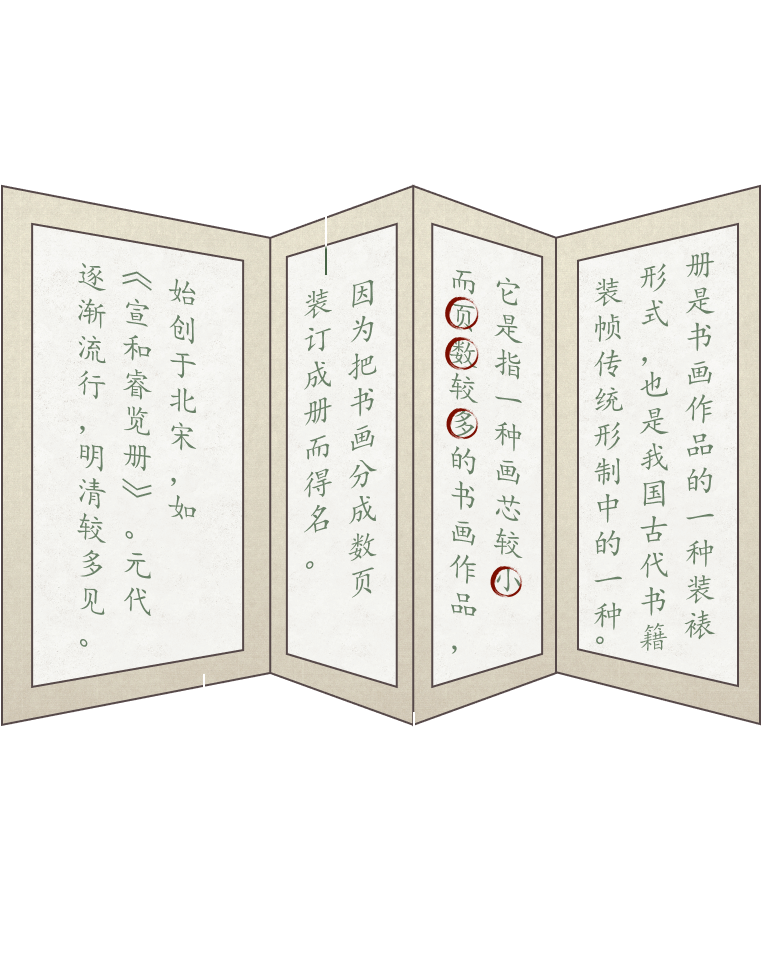 册是书画作品的一种装裱
形式，也是我国古代书籍
装帧传统形制中的一种。
它是指一种画芯较小
而页数较多的书画作品，
因为把书画分成数页
装订成册而得名。
始创于北宋，如
《宣和睿览册》。元代
逐渐流行，明清较多见。